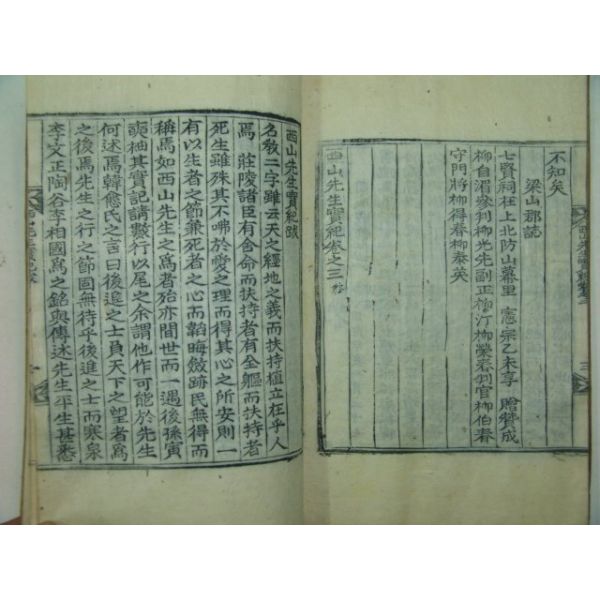 不知矣
梁山郡誌
七賢祠在上北防山幕里 憲宗乙未享 贈贊成
柳自湄參判柳光先副正柳汀柳榮忝判官柳伯春
守門將柳得春柳泰英
西山先生實紀卷之三終
西山先生實紀跋
名敎二字雖云天之經地之義而扶持植立在乎人
焉 莊陵諸臣有舍命而扶持者有全軀而扶持者
死生雖殊其不咈於愛之理而得其心之所安則一
有以生者之節兼死者之心而韜晦斂跡民無得而
稱焉如西山先生之爲者殆亦間世而一遇後孫寅
奭袖其實記請數行以尾之余謂他作可能於先生
何述焉韓愈氏之言曰後進之士負天下之望者爲
之後焉先生之行之節固無待乎後進之士而寒泉
李文正陶谷李相國爲之銘與傳述先生平生甚悉